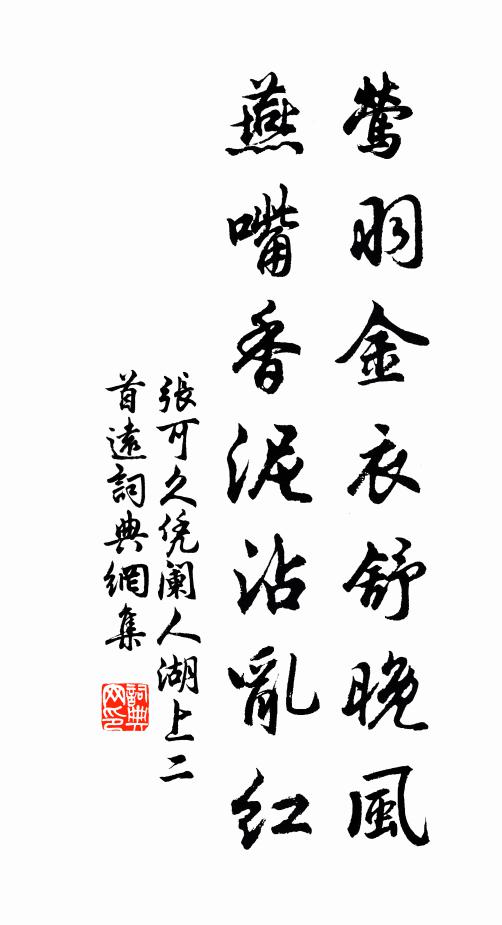 鶯羽金衣舒晚風
燕嘴香泥沾亂紅
張可久凭闌人湖上二
首遠詞典網集
詞典網印